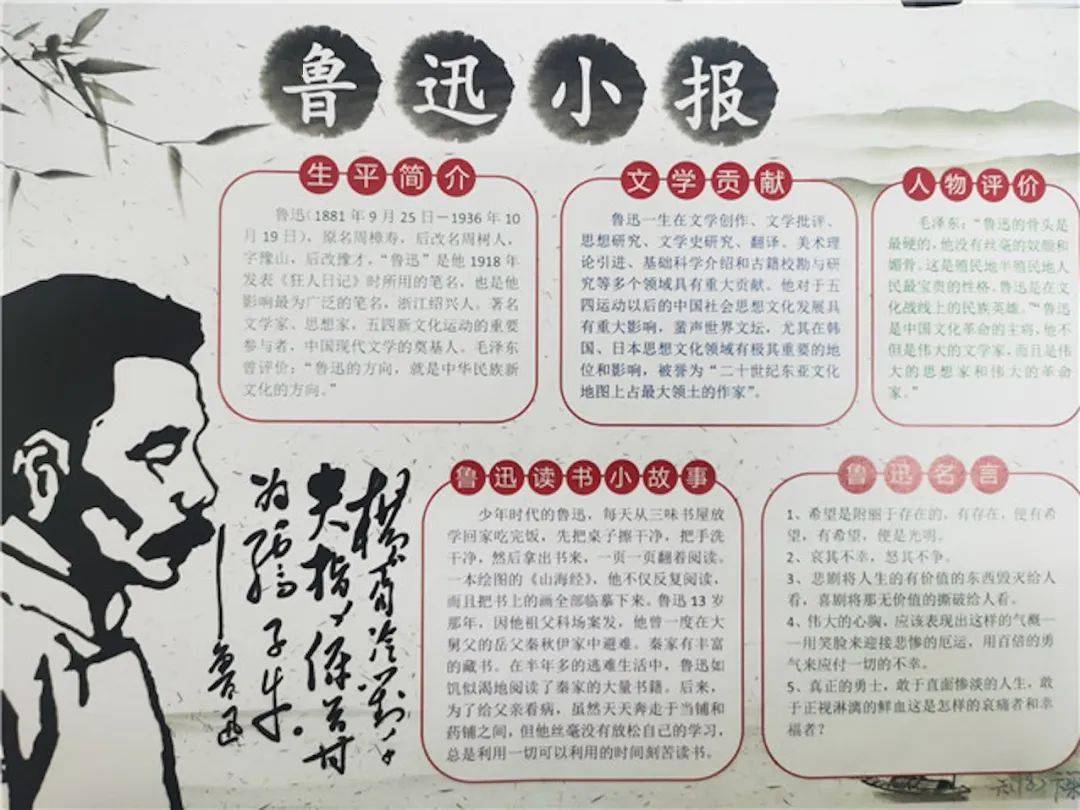 鲁迅小报
生平简介
鲁迅（1881年9月25日－1936年10
月19日），原名周樟寿，后改名周树人，
字豫山，后改豫才，“鲁迅”是他1918年
发表《狂人日记》时所用的笔名，也是他
影响最为广泛的笔名，浙江绍兴人。著名
文学家、思想家，五四新文化运动的重要
参与者，中国现代文学的奠基人。毛泽东
曾评价：“鲁迅的方向，就是中华民族新
文化的方向。”
文学贡献
鲁迅一生在文学创作、文学批评、
思想研究、文学史研究、翻译、美术理
论引进、基础科学介绍和古籍校勘与研
究等多个领域具有重大贡献。他对于五
四运动以后的中国社会思想文化发展具
有重大影响，蜚声世界文坛，尤其在韩
国、日本思想文化领域有极其重要的地
位和影响，被誉为“二十世纪东亚文化
地图上占最大领土的作家”。
人物评价
毛泽东：“鲁迅的骨头是
最硬的，他没有丝毫的奴颜和
媚骨。这是殖民地半殖民地人
民最宝贵的性格。鲁迅是在文
化战线上的民族英雄。”“鲁迅
是中国文化革命的主将，他不
但是伟大的文学家，而且是伟
大的思想家和伟大的革命
家。”
横眉冷对千
夫指俯首甘
为孺子牛。
——鲁迅
鲁迅读书小故事
少年时代的鲁迅，每天从三味书屋放
学回家吃完饭，先把桌子擦干净，把手洗
干净，然后拿出书来，一页一页翻着阅读。
一本绘图的《山海经》，他不仅反复阅读，
而且把书上的画全部临摹下来。鲁迅13岁
那年，因他祖父科场案发，他曾一度在大
舅父的岳父秦秋伊家中避难。秦家有丰富
的藏书。在半年多的逃难生活中，鲁迅如
饥似渴地阅读了秦家的大量书籍。后来，
为了给父亲看病，虽然天天奔走于当铺和
药铺之间，但他丝毫没有放松自己的学习，
总是利用一切可以利用的时间刻苦读书。
鲁迅名言
1、希望是附丽于存在的，有存在，便有希
望，有希望，便是光明。
2、哀其不幸，怒其不争。
3、悲剧将人生的有价值的东西毁灭给人
看，喜剧将那无价值的撕破给人看。
4、伟大的心胸，应该表现出这样的气概—
—用笑脸来迎接悲惨的厄运，用百倍的勇
气来应付一切的不幸。
5、真正的勇士，敢于直面惨淡的人生，敢
于正视淋漓的鲜血这是怎样的哀痛者和幸
福者？